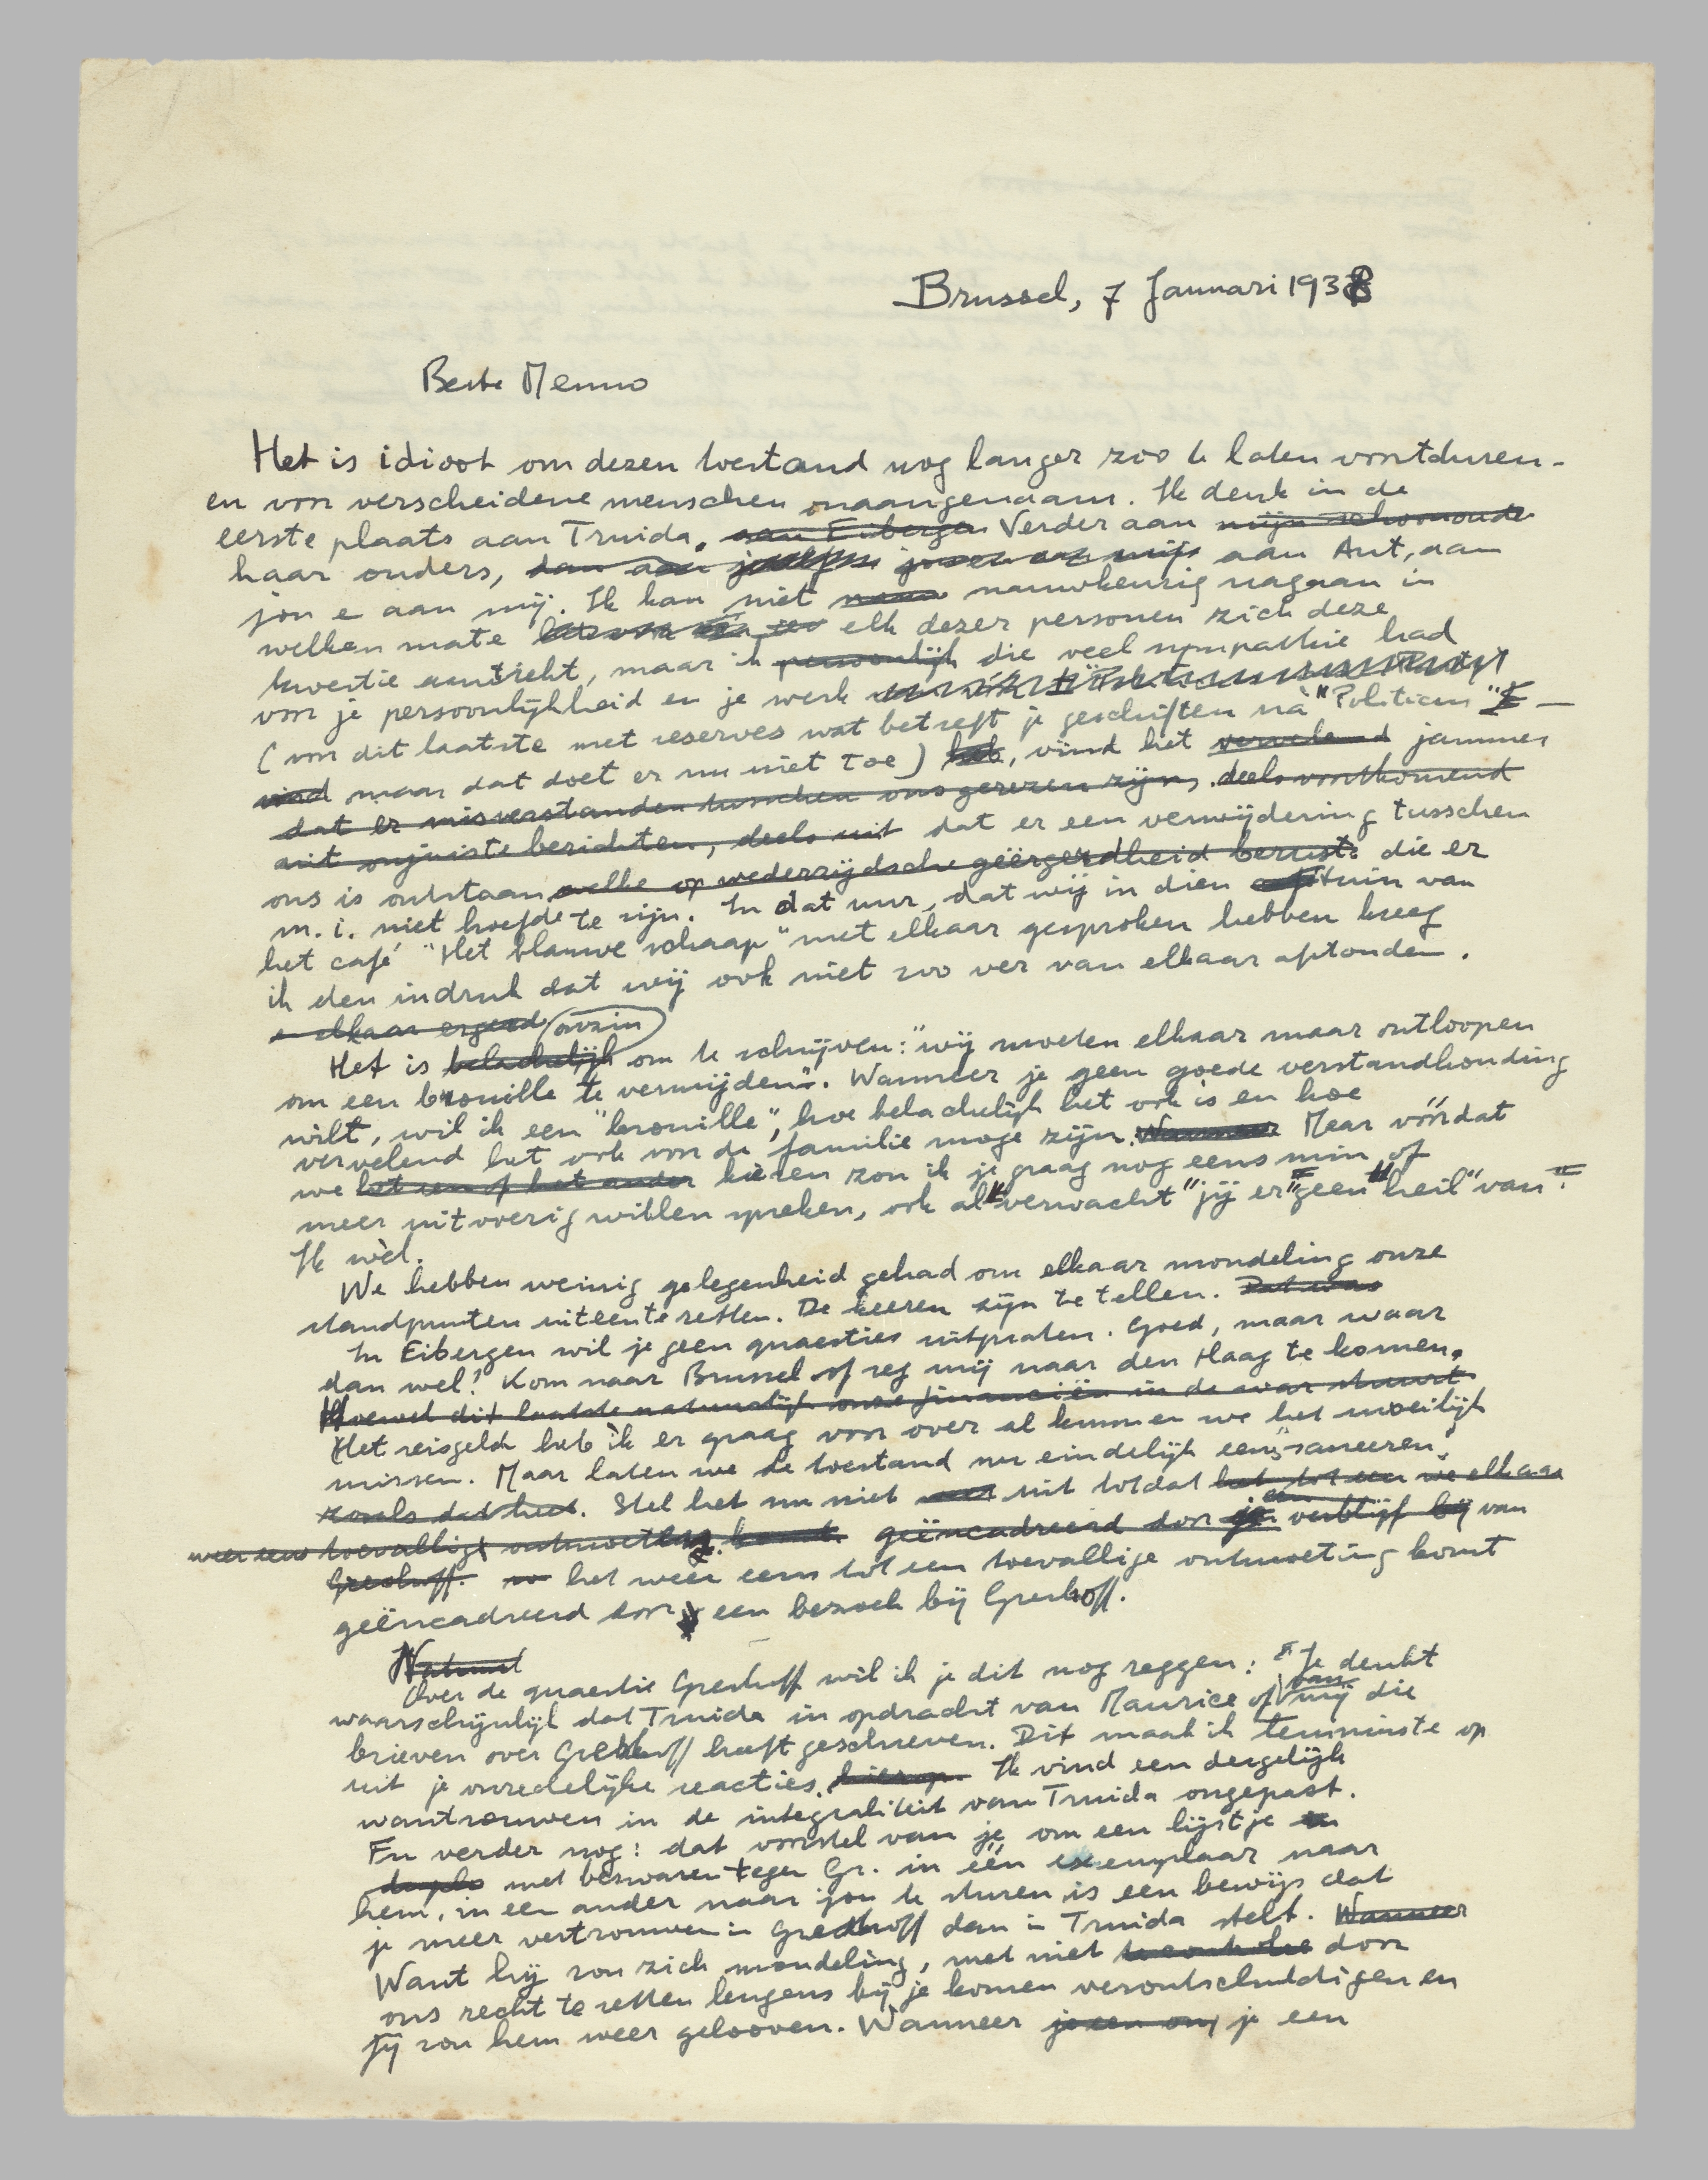 Brussel, 7 Januari 1938
Beste Menno
Het is idioot om dezen toestand nog langer zoo te laten voortduren -
en voor verscheidene menschen onaangenaam. Ik denk in de
eerste plaats aan Truida. aan Eibergen Verder aan mijn schoonouders
haar ouders, dan aan aan Ant, aan
jou e aan mij. Ik kan niet nauwkeurig nagaan in
welken mate elk dezer personen zich deze
kwestie aantrekt, maar ik persoonlijk die veel sympathie had
voor je persoonlijkheid en je werk
(voor dit laatste met reserves wat betreft je geschriften nà "Politicus" —
vind maar dat doet er nu niet toe) heb, vind het vervelend jammer
dat er misverstanden tusschen ons gerezen zijn, deels voortkomend
uit onjuiste berichten, deels uit dat er een verwijdering tusschen
ons is ontstaan welke op wederzijdsche geërgerdheid berust die er
m.i. niet hoefde te zijn. In dat uur, dat wij in dien tuin van
het café "Het blauwe schaap" met elkaar gesproken hebben kreeg
ik den indruk dat wij ook niet zoo ver van elkaar afstonden.
e elkaar ergerd onzin
Het is belachelijk om te schrijven: "wij moeten elkaar maar ontloopen
om een brouille te vermijden". Wanneer je geen goede verstandhouding
wilt, wil ik een "brouille", hoe belachelijk het ook is en hoe
vervelend het ook voor de familie moge zijn. Wanneer Maar vóórdat
we het een of het ander kiezen zou ik je graag nog eens min of
meer uitvoerig willen spreken, ook al "verwacht" jij er "geen heil" van.
Ik wèl.
We hebben weinig gelegenheid gehad om elkaar mondeling onze
standpunten uiteen te zetten. De keeren zijn te tellen. Dat was
In Eibergen wil je geen quaesties uitpraten. Goed, maar waar
dan wel? Kom naar Brussel of zeg mij naar den Haag te komen.
Hoewel dit laatste natuurlijk onze financiën in de war stuurt.
Het reisgeld heb ik er graag voor over al kunnen we het moeilijk
missen. Maar laten we de toestand nu eindelijk eens "saneeren"
zooals dat heet. Stel het nu niet uit totdat het tot een we elkaar
weer eens toevallig ontmoeten geëncadreerd door een verblijf bij van
Greshoff. het weer eens tot een toevallige ontmoeting komt
geëncadreerd door een bezoek bij Greshoff.
Natuurl
Over de quaestie Greshoff wil ik je dit nog zeggen: Je denkt
waarschijnlijk dat Truida in opdracht van Maurice of van mij die
brieven over Greshoff heeft geschreven. Dit maak ik tenminste op
uit je onredelijke reacties hierop. Ik vind een dergelijk
wantrouwen in de integraliteit van Truida ongepast.
En verder nog: dat voorstel van je om een lijstje in
duplo met bezwaren tegen Gr. in één exemplaar naar
hem, in een ander naar jou te sturen is een bewijs dat
je meer vertrouwen in Greshoff dan in Truida stelt. Wanneer
Want hij zou zich mondeling, met niet door
ons recht te zetten leugens bij je komen verontschuldigen en
jij zou hem weer gelooven. Wanneer je een